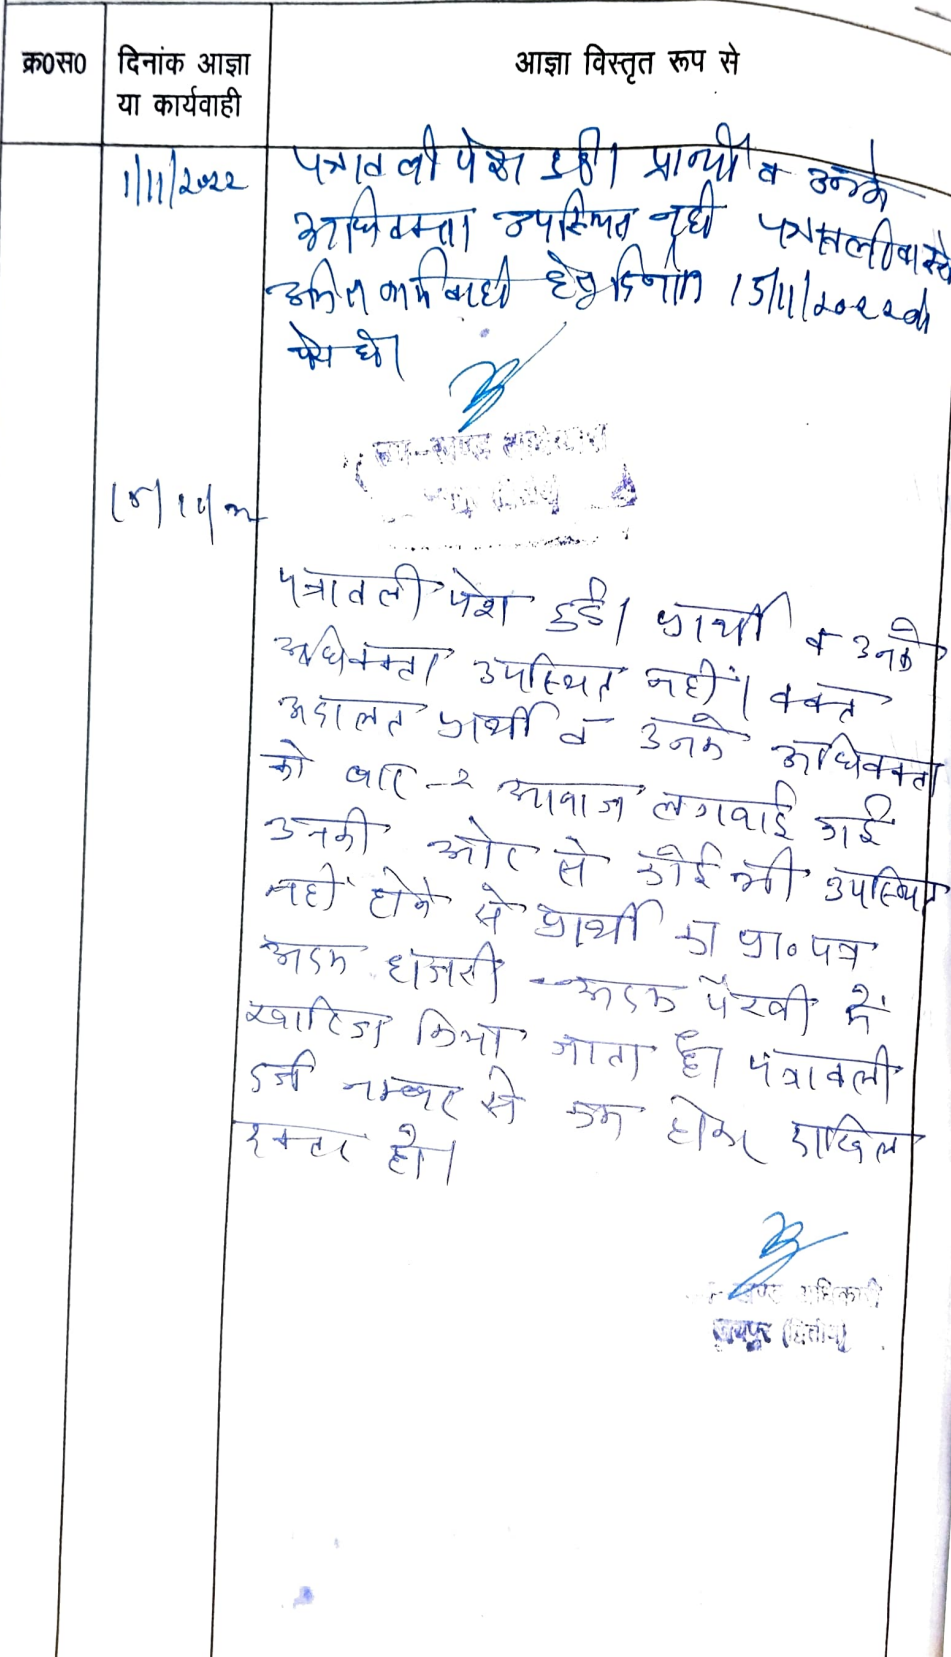 क्र0स0 दिनांक आज्ञा या कार्यवाही आज्ञा विस्तृत रूप से
1/11/2022 पत्रावली पेश हुई। प्रार्थी व उनके
अधिवक्ता उपस्थित नहीं पत्रावली वास्ते
उचित कार्यवाही हेतु दिनांक 15/11/2022 को
पेश हो।
15/11/22
पत्रावली पेश हुई। प्रार्थी व उनके
अधिवक्ता उपस्थित नहीं। वक्त
अदालत प्रार्थी व उनके अधिवक्ता
को बार-२ आवाज लगवाई गई
उनकी ओर से कोई भी उपस्थित
नहीं होने से प्रार्थी का प्रा॰ पत्र
अदम हाजरी - अदम पैरवी में
खारिज किया जाता है। पत्रावली
दर्ज नम्बर से कम होकर दाखिल
दफ्तर हो।
खण्ड अधिकारी
जयपुर (द्वितीय)